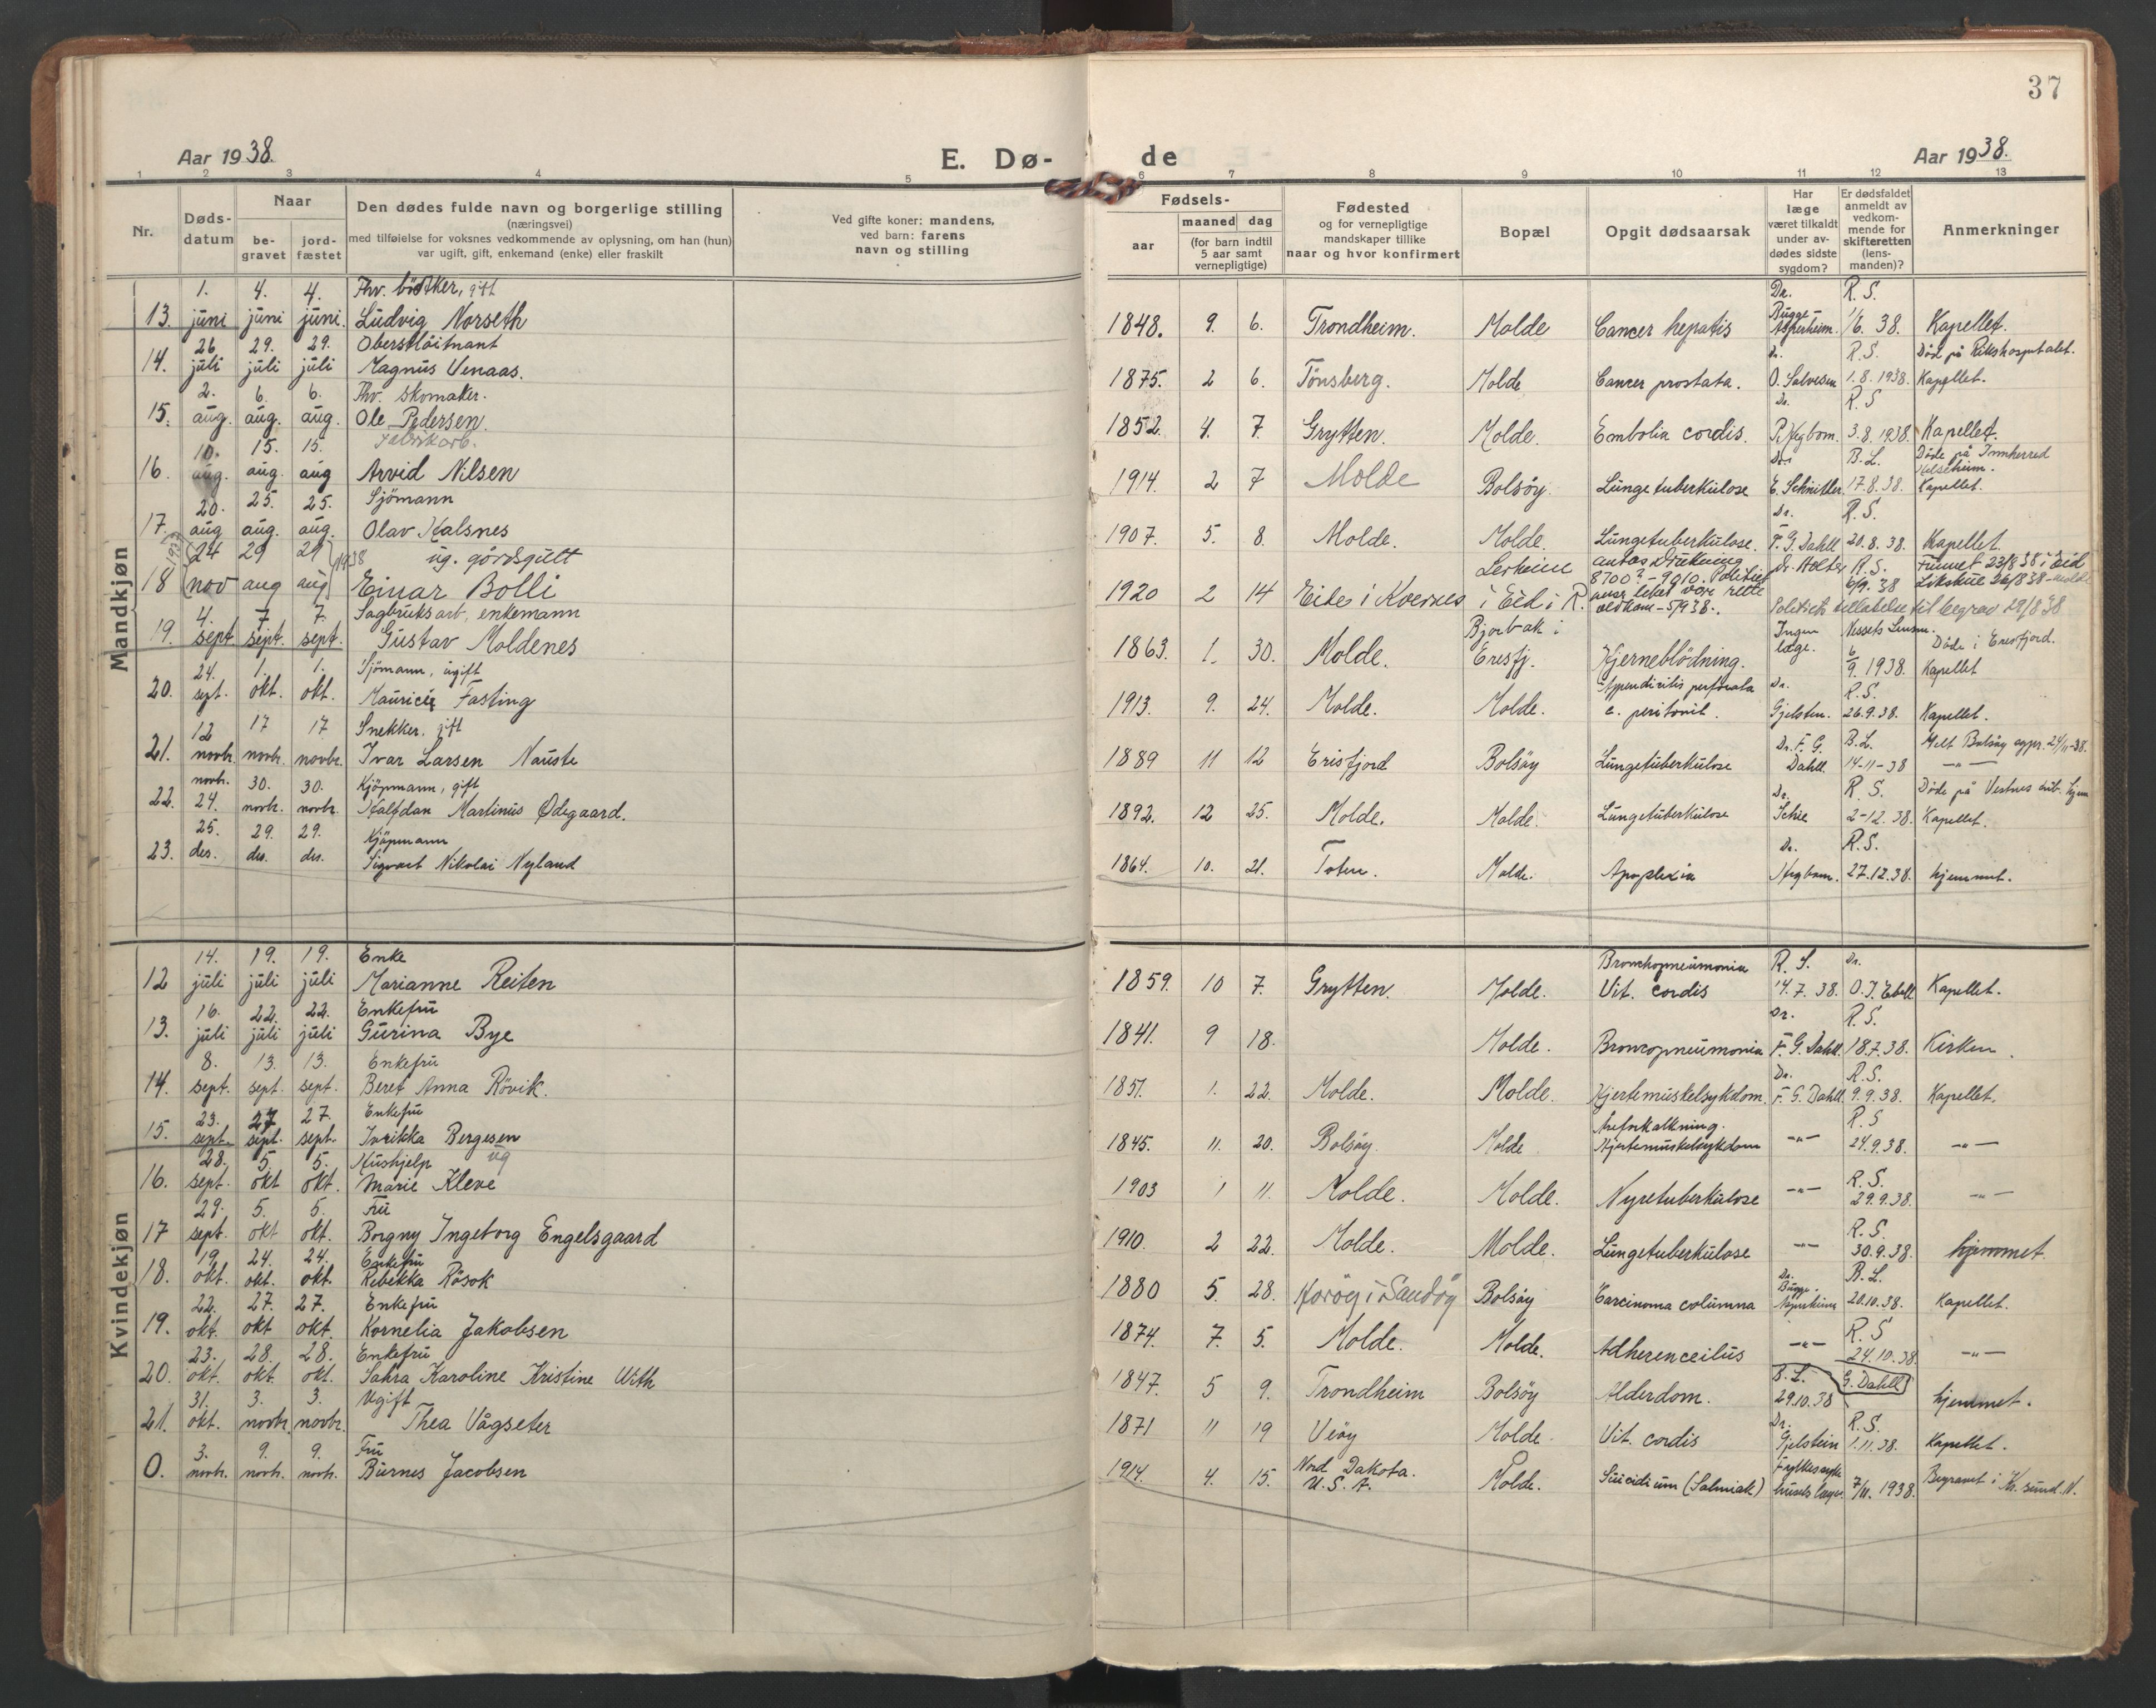 37
Aar 1938.
E. Dø-
de
Aar 1938.
1 2 3 4 5 6 7 8 9 10 11 12 13
Nr.
Døds-
datum
Naar
be-
gravet
jord-
fæstet
Den dødes fulde navn og borgerlige stilling
(næringsvei)
med tilføielse for voksnes vedkommende av oplysning, om han (hun)
var ugift, gift, enkemand (enke) eller fraskilt
Ved gifte koner: mandens,
ved barn: farens
navn og stilling
Fødsels-
aar
maaned dag
(for barn indtil
5 aar samt
vernepligtige)
Fødested
og for vernepligtige
mandskaper tillike
naar og hvor konfirmert
Bopæl
Opgit dødsaarsak
Har
læge
været tilkaldt
under av-
dødes sidste
sygdom?
Er dødsfaldet
anmeldt av
vedkom-
mende for
skifteretten
(lens-
manden)?
Anmerkninger
Mandkjøn
1. 4. 4. Fhv. bödker, gift Dr. R. S.
13. juni juni juni. Ludvig Norseth 1848. 9. 6. Trondheim. Molde Cancer hepatis Bugge- 1/6. 38. Kapellet.
26 29. 29. Oberstlöitnant Dr. R.S. Död på Rikshospitalet.
14. juli juli juli Magnus Venaas. 1875. 2 6. Tönsberg. Molde Cancer prostata. O. Salvesen 1.8.1938. Kapellet.
2. 6. 6. Fhv. skomaker. Dr. R.S
15. aug. aug. aug. Ole Pedersen. 1852. 4. 7. Grytten. Molde. Embolia cordis. 3.8.1938. Kapellet.
10. 15. 15. Fabrikarb. Dr. B.L. Döde på Innherred
16. aug. aug. aug Arvid Nilsen 1914. 2 7 Molde Bolsöy. Lungetuberkulose E. Schnitler 17.8.38. Helseheim. Kapellet.
20. 25. 25. Sjömann Dr. R.S.
17. aug aug. aug. Olav Halsnes 1907. 5. 8. Molde. Molde. Lungetuberkulose. F. G. Dahll 20.8.38. Kapellet.
1937 24 29 29 1938 ug. gårdsgutt Lerheim Drukning Funnet 23/8 38 i Eid
18 nov aug aug Einar Bolli 1920 2 14 Eide i Kvernes i Eid i R. R.S. 6/9. 38 Likskue 26/8 38
Politiets tillatelse til begrav 29/8 38
4. 7 7. Sagbruksarb, enkemann Ingen
19. sept sept. sept. Gustav Moldenes 1863. 1. 30. Molde. i Eresfj. Hjerneblödning. læge. 6/9. 1938. Döde i Eresfjord. Kapellet
24. 1. 1. Sjömann, ugift Apendisitis perforata Dr. R.S.
20. sept. okt. okt. Fasting 1913. 9. 24. Molde. Molde. c. peritonit. Gjelsten. 26.9.38. Kapellet.
12 17 17. Snekker. gift Dr. F. G. B.L. Melt Bolsöy 24/11-38.
21. novbr. novbr. novbr. Ivar Larsen Nauste 1889 11 12 Erisfjord Bolsöy Lungetuberkulose Dahll. 14-11-38 —"—
novbr. 30. 30. Kjöpmann, gift Dr. R.S. Döde på Vestnes tub. hjem
22. 24. novbr. novbr. Halfdan Martinus Ødegaard. 1892. 12 25. Molde. Molde. Lungetuberkulose 2-12.38. Kapellet.
25. 29. 29. Kjöpmann Dr. R.S.
23. des. des. des. Sigvart Nikolai Nyland 1864. 10. 21. Toten. Molde. Apoplexia 27.12.38. hjemmet.
Kvindekjøn
14. 19. 19. Enke Bronchopneumonia R.S. Dr.
12 juli juli juli Marianne Reiten 1859. 10 7. Grytten. Molde. Vit. cordis 14.7.38. Kapellet.
16. 22. 22. Enkefru Dr. R.S.
13. juli juli juli Gurina Bye 1841. 9 18. Molde. Broncopneumonia F. G. Dahll. 18.7.38. Kirken.
8. 13. 13. Enkefru Dr. R.S.
14. sept. sept. sept. Beret Anna Rövik. 1851. 1. 22. Molde. Molde. Hjertemuskelsykdom. F. G. Dahll. 9.9.38. Kapellet.
23. 27 27. Enkefru R.S
15. sept. sept. sept. Ivrikka Bergesen 1845. 11. 20. Bolsöy. Molde Hjertemuskelsykdom —"— 24.9.38. —"—
28. 5. 5. Hushjelp ug R.S.
16. sept. okt okt. Marie Kleve 1903 1 11. Molde. Molde. Nyretuberkulose —"— 29.9.38. —"—
29. 5. 5. Fru R.S.
17 sept. okt okt. Borgny Ingeborg Engelsgaard 1910. 2 22. Molde. Molde. Lungetuberkulose —"— 30.9.38. hjemmet.
19. 24. 24. Enkefru Dr. Bugge- B.L.
18. okt. okt. okt. Rebekka Rösok 1880 5. 28. Haröy i Sandöy Bolsöy Carcinoma columna 20.10.38. Kapellet.
22. 27. 27. Enkefru R.S
19. okt. okt okt. Kornelia Jakobsen 1874. 7. 5. Molde. Molde. —"— 24.10.38. —"—
23. 28. 28. Enkefru B.L. G. Dahll
20. okt. okt. okt. Sahra Karoline Kristine With 1847. 5 9. Trondheim Bolsöy Alderdom. 29.10.38 hjemmet.
31. 3. 3. Ugift Dr. R.S.
21. okt. novbr. novbr. Thea Vågseter 1871 11 19 Veöy Molde. Vit. cordis Gjelstein 1.11.38. Kapellet.
3. 9. 9. Fru
0. novbr. novbr. novbr. Burnes Jacobsen 1914. 4. 15. Nord Dakota. U.S.A. Molde. Suicidium (Salmiak) 7/11. 1938. Begravet i Kr.sund N.